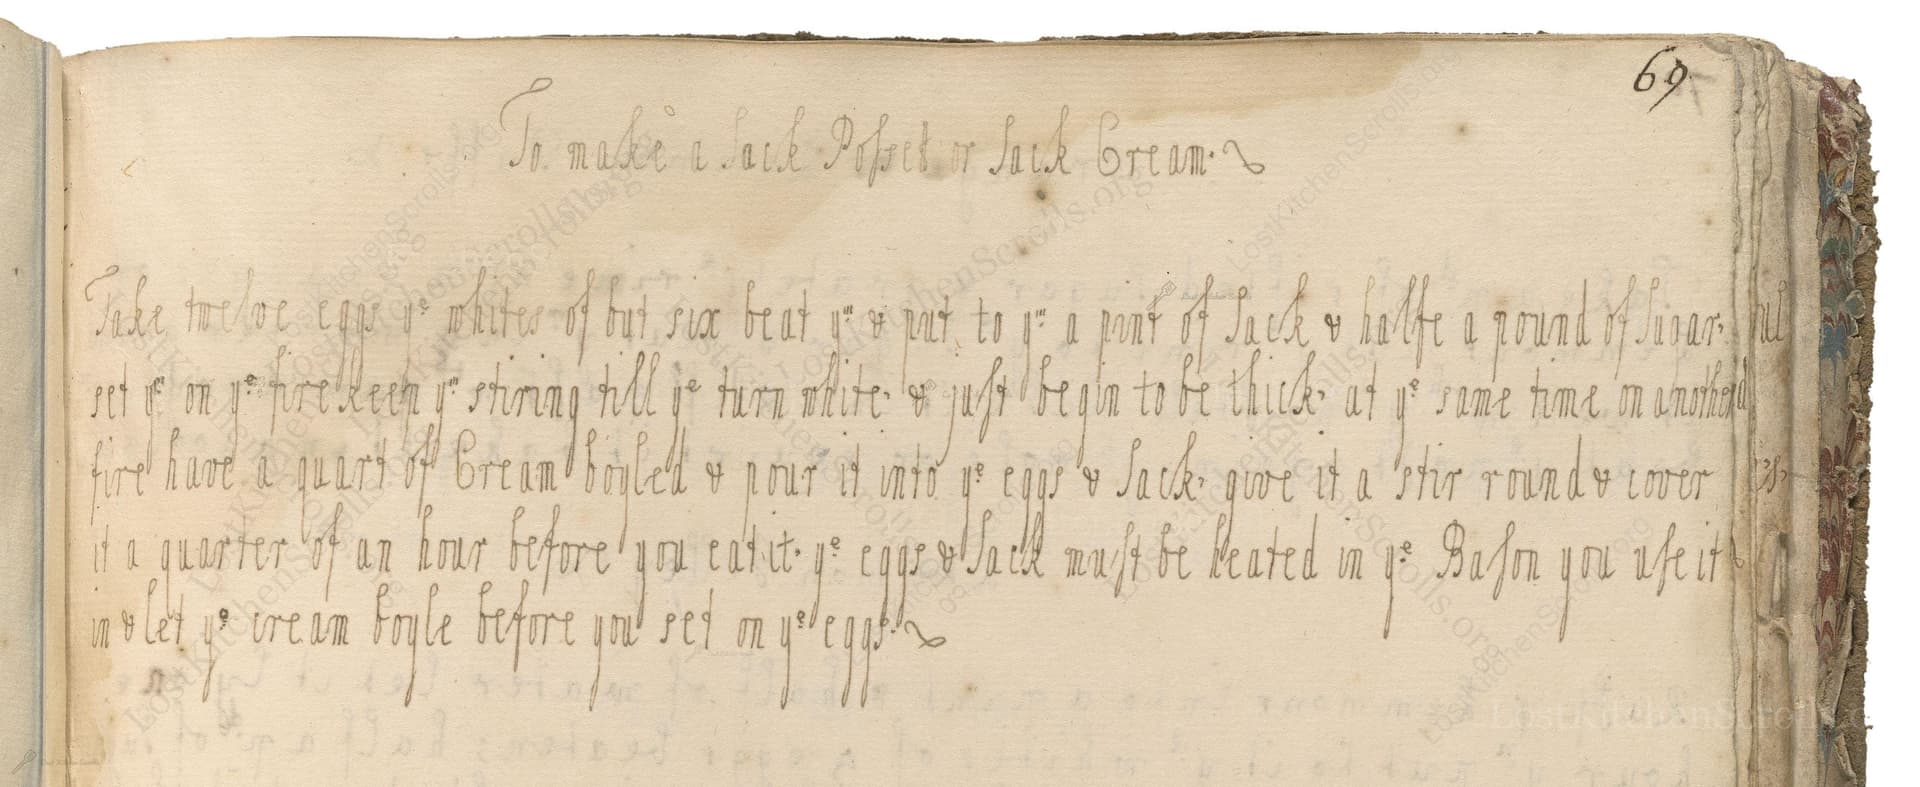 69
To make a Sack Posset or Sack Cream.
Take twelve eggs yᵉ whites of but six beat yᵐ & put to yᵐ a pint of Sack & halfe a pound of Sugar,
set yᵐ on yᵉ fire keep yᵐ stiring till yᵉ turn white, & just begin to be thick, at yᵉ same time on another
fire have a quart of Cream boyled & pour it into yᵉ eggs & Sack, give it a stir round & cover
it a quarter of an hour before you eat it. yᵉ eggs & Sack must be heated in yᵉ Bason you use it
in & let yᵉ cream boyle before you set on yᵉ eggs.
LostKitchenScrolls.org